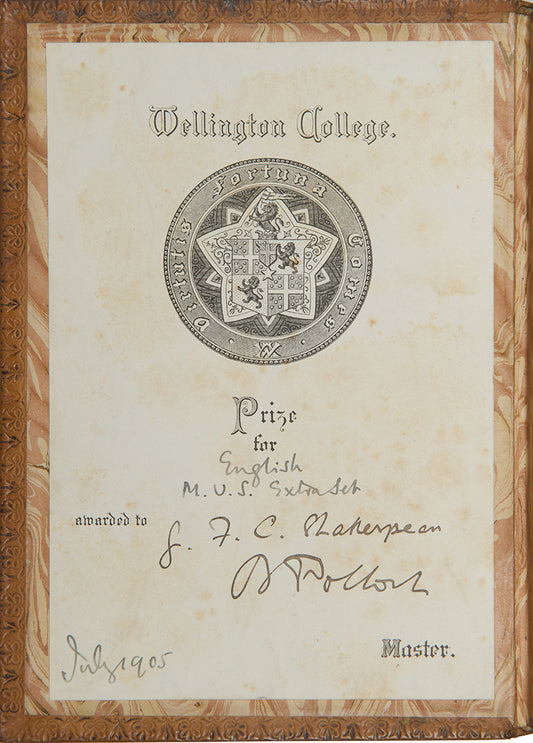 Wellington College.
Virtutis Fortuna Comes
Prize
for
English
M.U.S. Extra Set
awarded to
G. F. C. Shakespear
B Pollock
Master.
July 1905